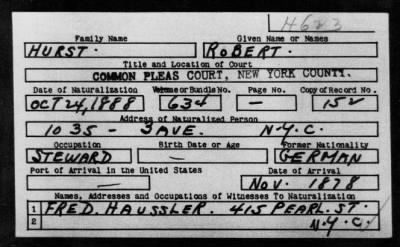 H623
Family Name Given Name or Names
HURST. ROBERT.
Title and Location of Court
COMMON PLEAS COURT, NEW YORK COUNTY.
Date of Naturalization Volume or Bundle No. Page No. Copy of Record No.
OCT 24, 1888 634 — 152
Address of Naturalized Person
1035 - 3 AVE. N.Y.C.
Occupation Birth Date or Age Former Nationality
STEWARD — GERMAN
Port of Arrival in the United States Date of Arrival
— NOV. 1878
Names, Addresses and Occupations of Witnesses To Naturalization
1 FRED. HAUSSLER. 415 PEARL. ST.
2 N.Y.C.